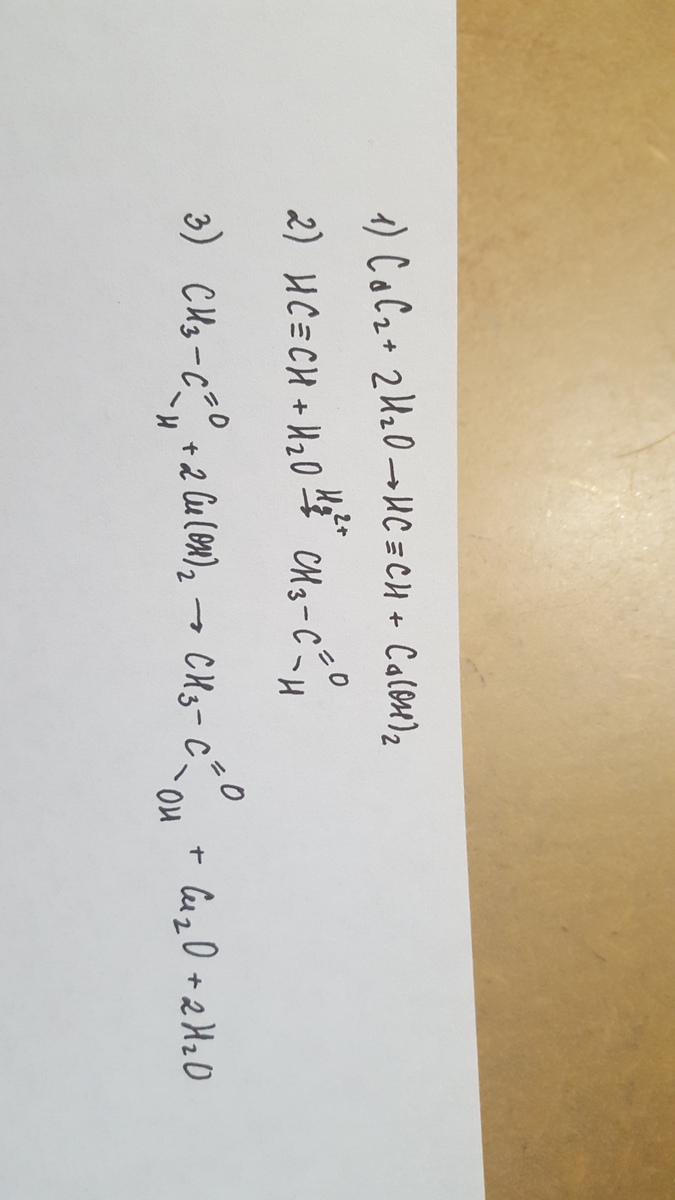 1) CaC₂ + 2H₂O → HC≡CH + Ca(OH)₂
2) HC≡CH + H₂O Hg²⁺→ CH₃-C=O-H
3) CH₃-C=O-H + 2Cu(OH)₂ → CH₃-C=O-OH + Cu₂O + 2H₂O